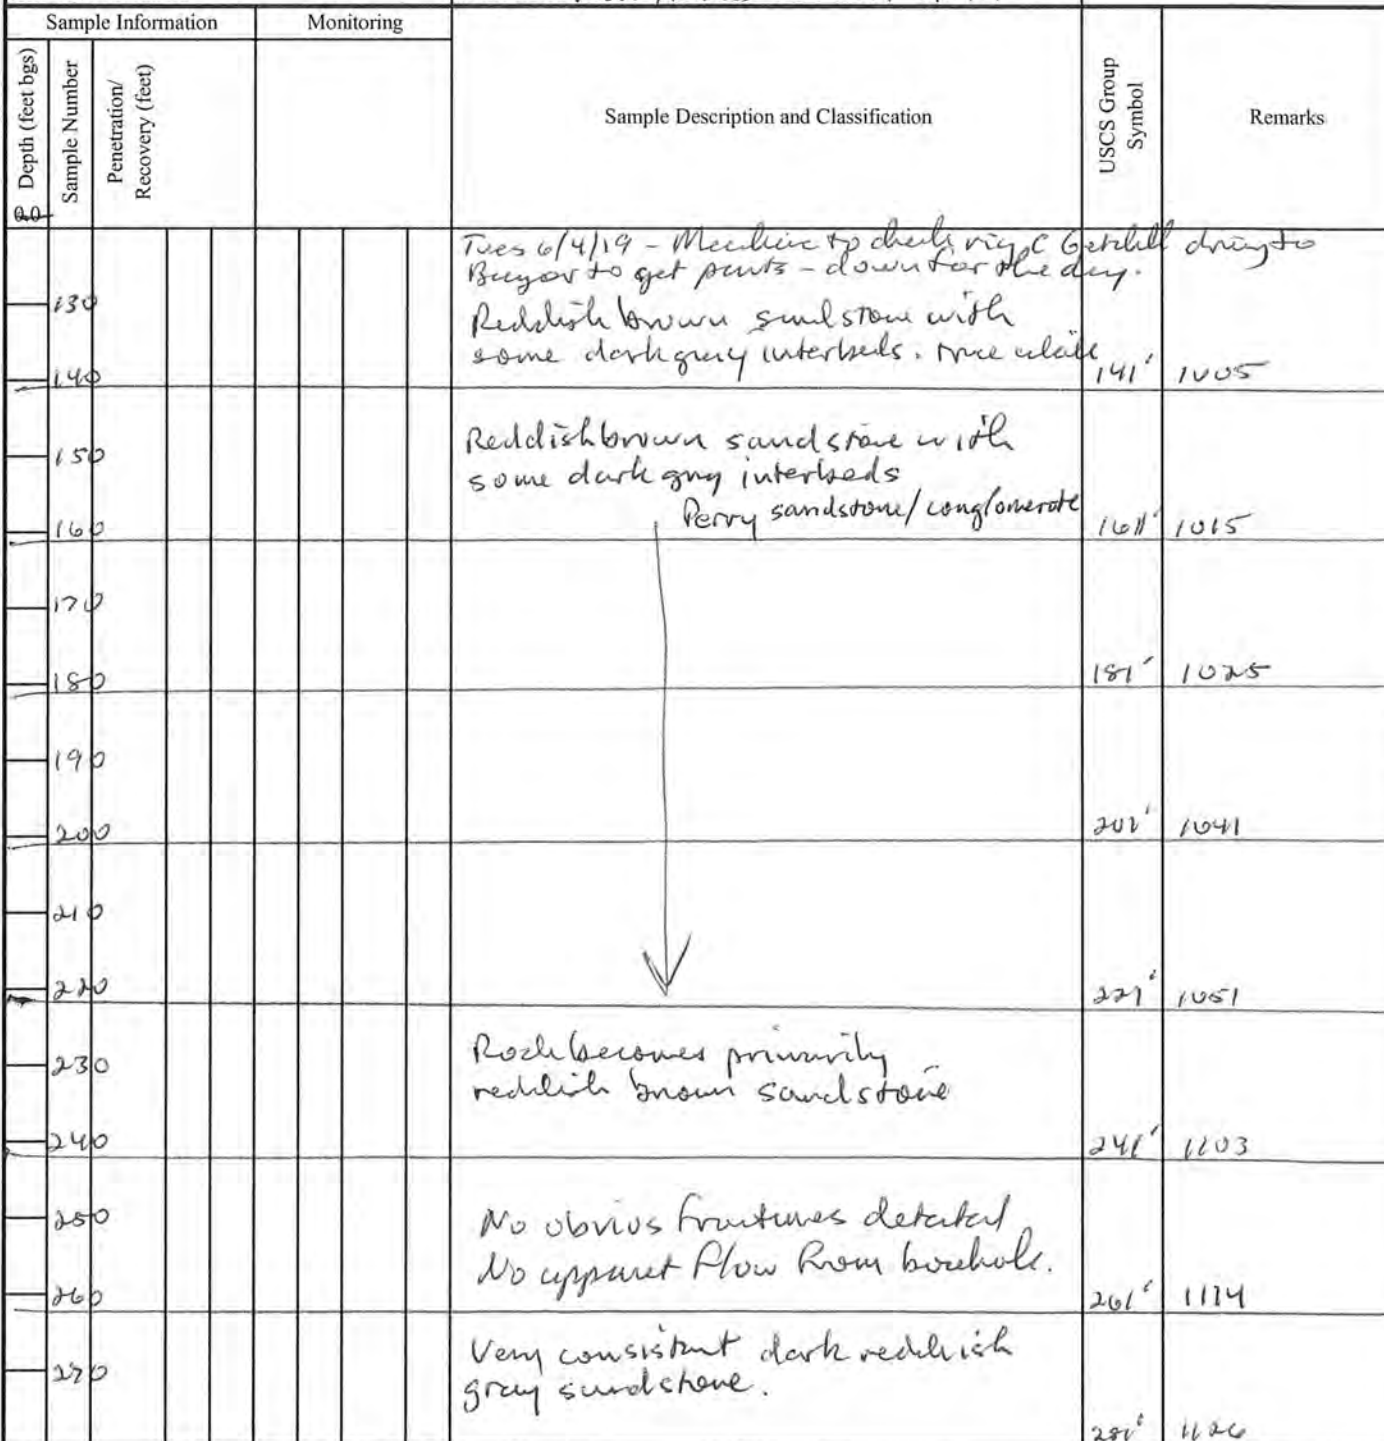 Sample Information
Monitoring
Depth (feet bgs)
Sample Number
Penetration/
Recovery (feet)
Sample Description and Classification
USCS Group
Symbol
Remarks
0.0
Tues 6/4/19 - Mechanic to check rig, C Getchell driving to
Bangor to get parts - down for the day.
130
Reddish brown sandstone with
some dark gray interbeds.
140
141' 1005
150
Reddish brown sandstone with
some dark gray interbeds
Perry sandstone/conglomerate
160
161' 1015
170
180
181' 1025
190
200
201' 1041
210
220
221' 1051
230
Rock becomes primarily
reddish brown sandstone
240
241' 1103
250
No obvios fractures detected
No apparent flow from borehole.
260
261' 1114
270
Very consistent dark reddish
gray sandstone.
281' 1126